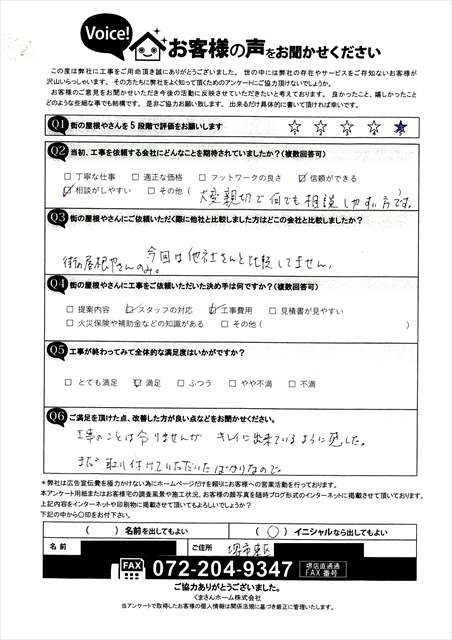 Voice!
お客様の声をお聞かせください
この度は弊社に工事をご用命頂き誠にありがとうございました。世の中には弊社の存在やサービスをご存知ないお客様が
沢山いらっしゃいます。その方たちに弊社をよく知って頂くためのアンケートにご協力頂けないでしょうか。
お客様のご意見をお聞かせいただき今後の活動に反映させていただきたいと考えております。良かったこと、嬉しかったこと
どのような些細な事でも結構です。是非ご協力お願い致します。出来るだけ具体的に書いて頂ければ幸いです。
Q1 街の屋根やさんを5段階で評価をお願いします
1 2 3 4 5
Q2 当初、工事を依頼する会社にどんなことを期待されていましたか?(複数回答可)
□丁寧な仕事 □適正な価格 □フットワークの良さ ☑信頼ができる
☑相談がしやすい □その他(大変親切で何でも相談しやすい方です。)
Q3 街の屋根やさんにご依頼いただく際に他社と比較しました方はどこの会社と比較しましたか?
今回は他社さんと比較してません、
街の屋根やさんのみ。
Q4 街の屋根やさんに工事をご依頼いただいた決め手は何ですか?(複数回答可)
□提案内容 ☑スタッフの対応 ☑工事費用 □見積書が見やすい
□火災保険や補助金などの知識がある □その他( )
Q5 工事が終わってみて全体的な満足度はいかがですか?
□とても満足 ☑満足 □ふつう □やや不満 □不満
Q6 ご満足を頂けた点、改善した方が良い点などをお聞かせください。
工事のことは分りませんが キレイに出来ているように感じた。
まだ取り付けていただいたばかりなので。
＊弊社は広告宣伝費を極力かけない為にホームページだけを頼りにお客様への営業活動を行っております。
本アンケート用紙またはお客様宅の調査風景や施工状況、お客様の顔写真を随時ブログ形式のインターネットに掲載させて頂いております。
上記内容をインターネットや印刷物に掲載させて頂いてもよろしいでしょうか?
下記の中から〇印をお付け下さい。
( )名前を出してもよい (〇)イニシャルなら出してもよい
名前 ご住所 堺市東区
FAX 072-204-9347 堺店直通
FAX番号
ご協力ありがとうございました。
くまさんホーム株式会社
当アンケートで取得したお客様の個人情報は関係法規に基づき厳正に管理いたします。